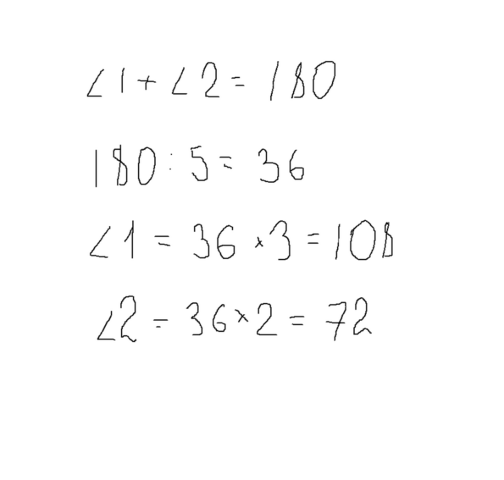 ∠1 + ∠2 = 180
180 : 5 = 36
∠1 = 36 × 3 = 108
∠2 = 36 × 2 = 72